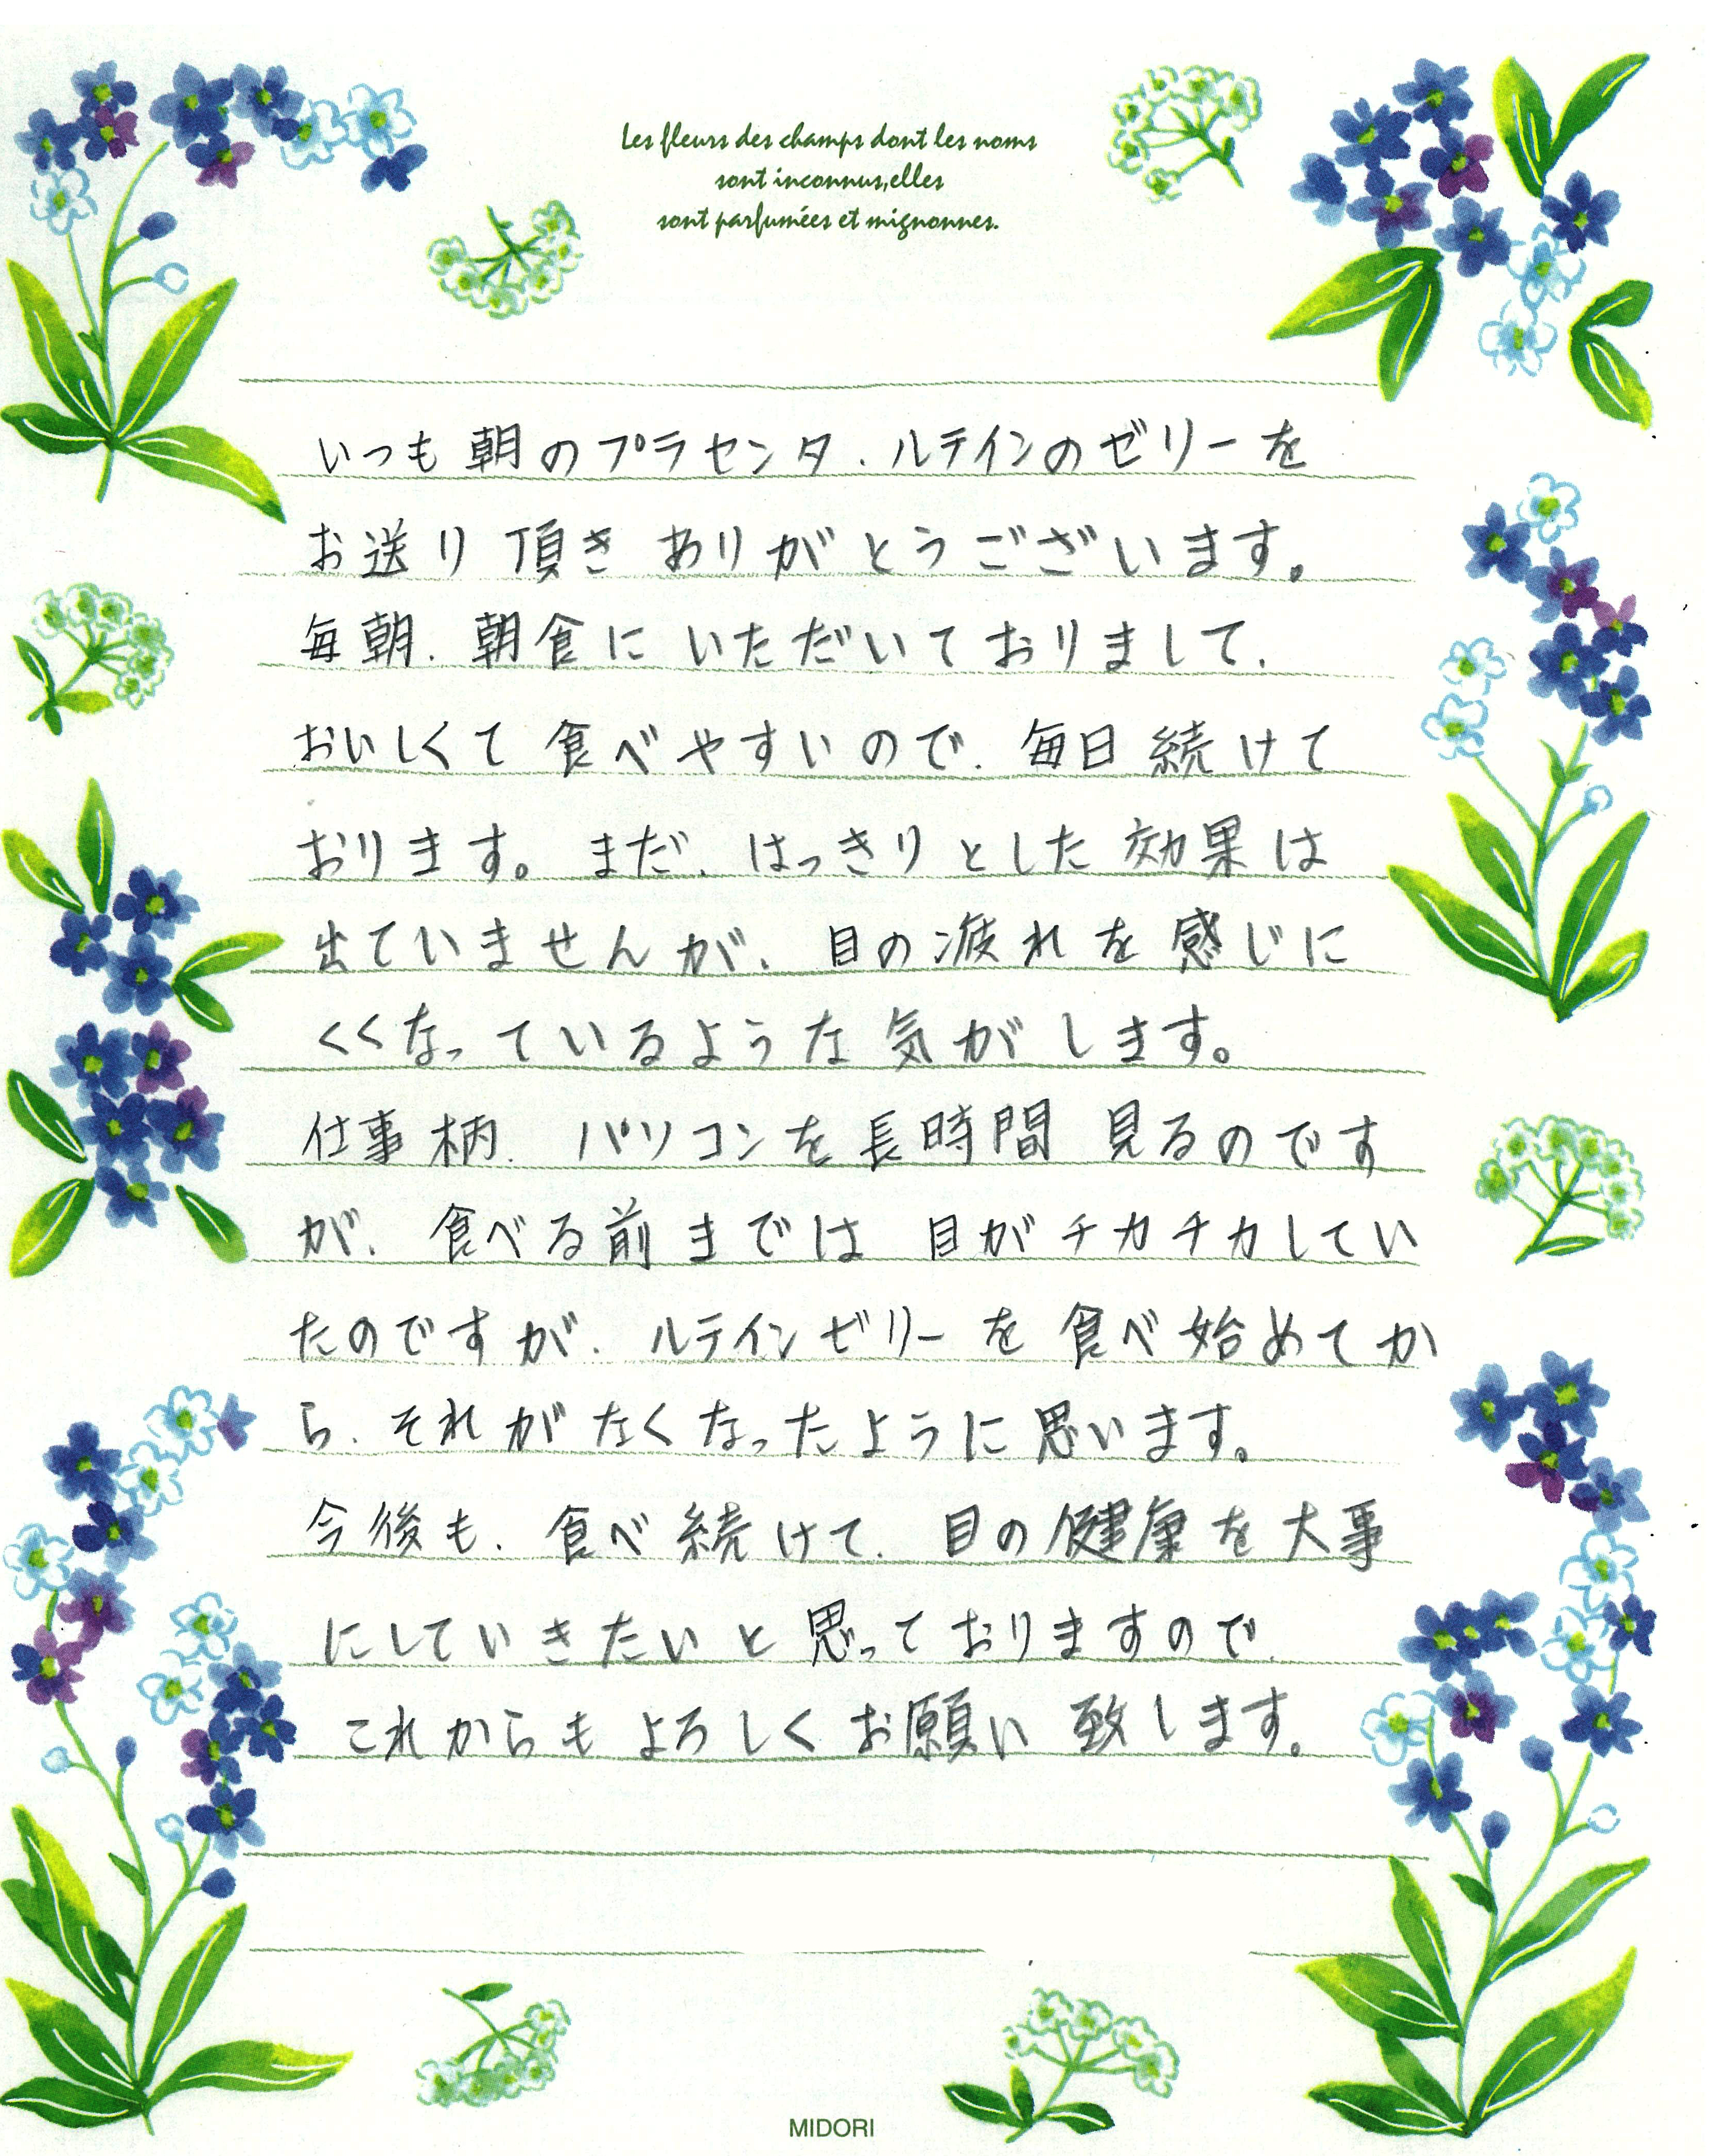 Les fleurs des champs dont les noms
sont inconnus,elles
sont parfumées et mignonnes.
いつも朝のプラセンタ、ルテインのゼリーを
お送り頂きありがとうございます。
毎朝、朝食にいただいておりまして、
おいしくて食べやすいので、毎日続けて
おります。まだ、はっきりとした効果は
出ていませんが、目の疲れを感じに
くくなっているような気がします。
仕事柄、パソコンを長時間見るのです
が、食べる前までは目がチカチカしてい
たのですが、ルテインゼリーを食べ始めてか
ら、それがなくなったように思います。
今後も、食べ続けて、目の健康を大事
にしていきたいと思っておりますので、
これからもよろしくお願い致します。
MIDORI